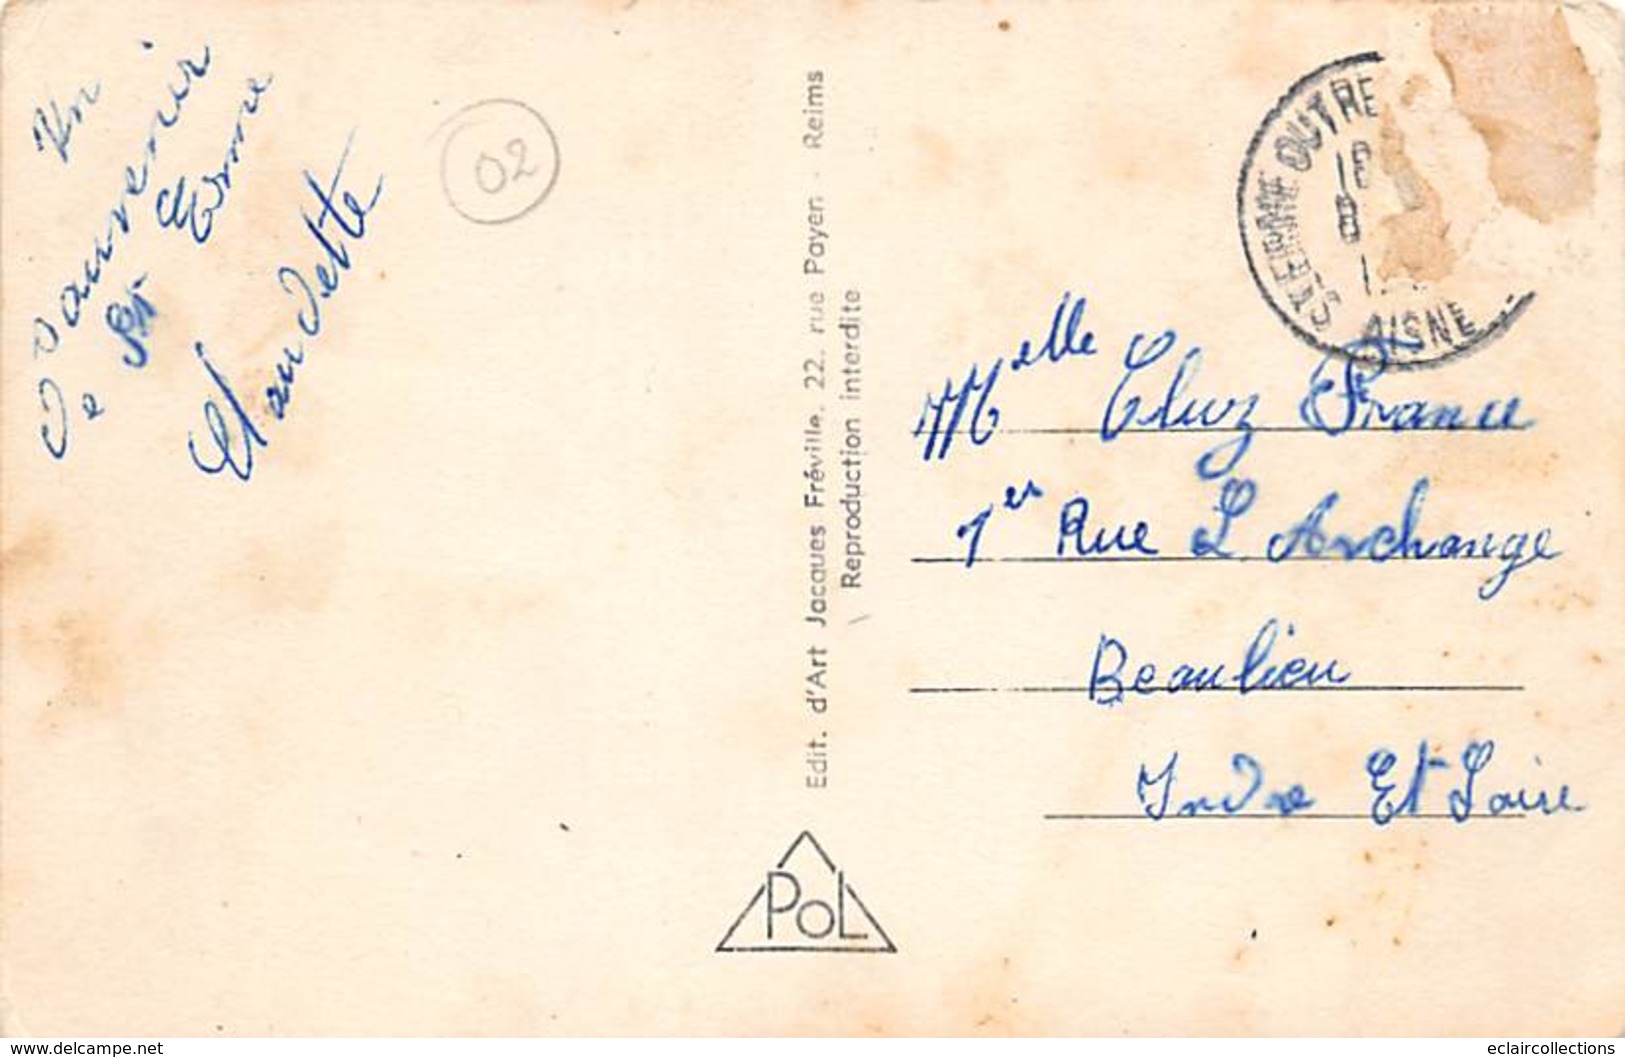 Un
souvenir
de St
Erme
Claudette
02
Edit. d'Art Jacques Fréville, 22, rue Payen - Reims
Reproduction interdite
POL
ST ERME OUTRE
18
8
AISNE
Melle Cluz France
1er Rue L Archange
Beaulieu
Indre Et Loire
www.delcampe.net
eclaircollections